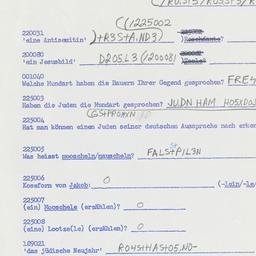 C(1225002
220031
'eine Antisemitin' )+R3S+A.ND3)
200080
'ein Jesusbild' D205L3(120008)
001040
Welche Mundart haben die Bauern Ihrer Gegend gesprochen?
225003
Haben die Juden die Mundart gesprochen? JU.DN HAM
225004
Hat man können einem Juden seiner deutschen Aussprache nach
225005
Was heisst mooscheln/mauscheln? FALS+P1L3N
225006
Koseform von Jakob: O (-lein/-le
225007
(ein) Mooschele (erzählen)? O
225008
(eine) Lootze(le) (erzählen)? O
189021
'das jüdische Neujahr' RO4S+HAS+O5.NO-